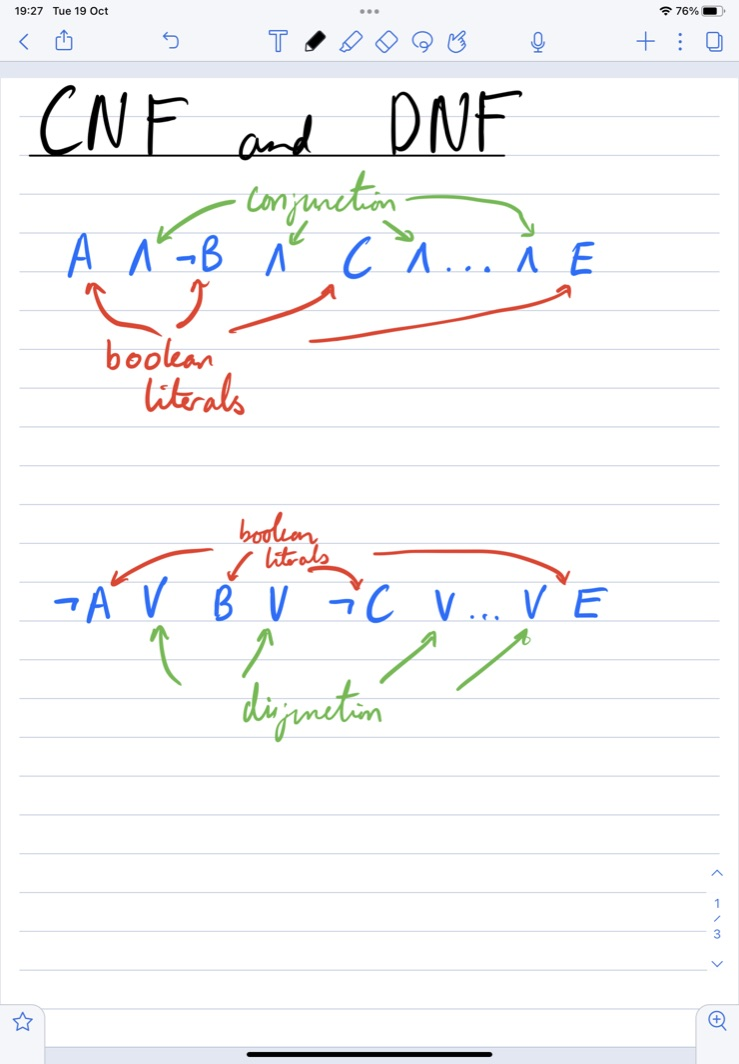 19:27 Tue 19 Oct
76%
T
CNF and DNF
conjunction
A ∧ ¬B ∧ C ∧ ... ∧ E
boolean
literals
boolean
literals
¬A ∨ B ∨ ¬C ∨ ... ∨ E
disjunction
1
/
3